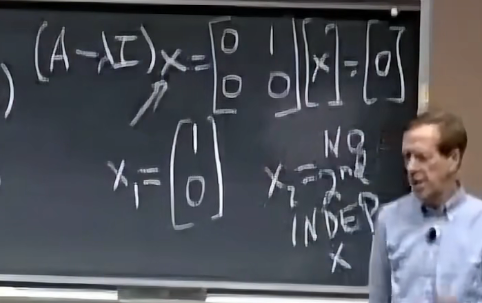 (A-λI)x = [0 1; 0 0][x] = [0]
)
x₁ = [1; 0]
x₂ = NO 2nd
INDEP
x